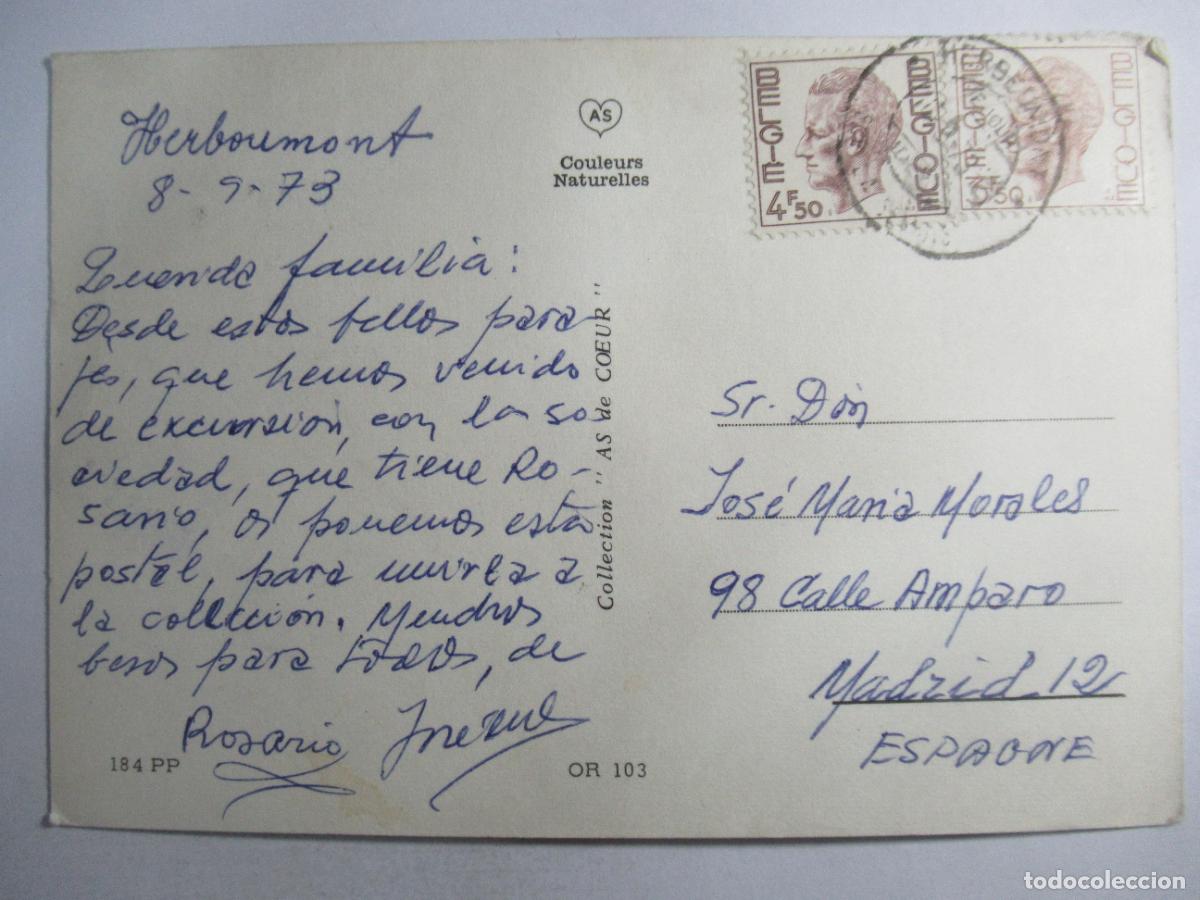 Herboumont
8-9-73
Querida familia:
Desde estos bellos para-
jes, que hemos venido
de excursión, con la so
ciedad, que tiene Ro-
sario, os ponemos esta
postal, para unirla a
la colección. Muchos
besos para todos, de
Rosario
184 PP
AS
Couleurs
Naturelles
Collection " AS de COEUR "
OR 103
BELGIE
BELGIQUE
4F50
BELGIQUE
BELGIE
Sr. Don
José Maria Morales
98 Calle Amparo
Madrid 12
ESPAGNE
todocoleccion